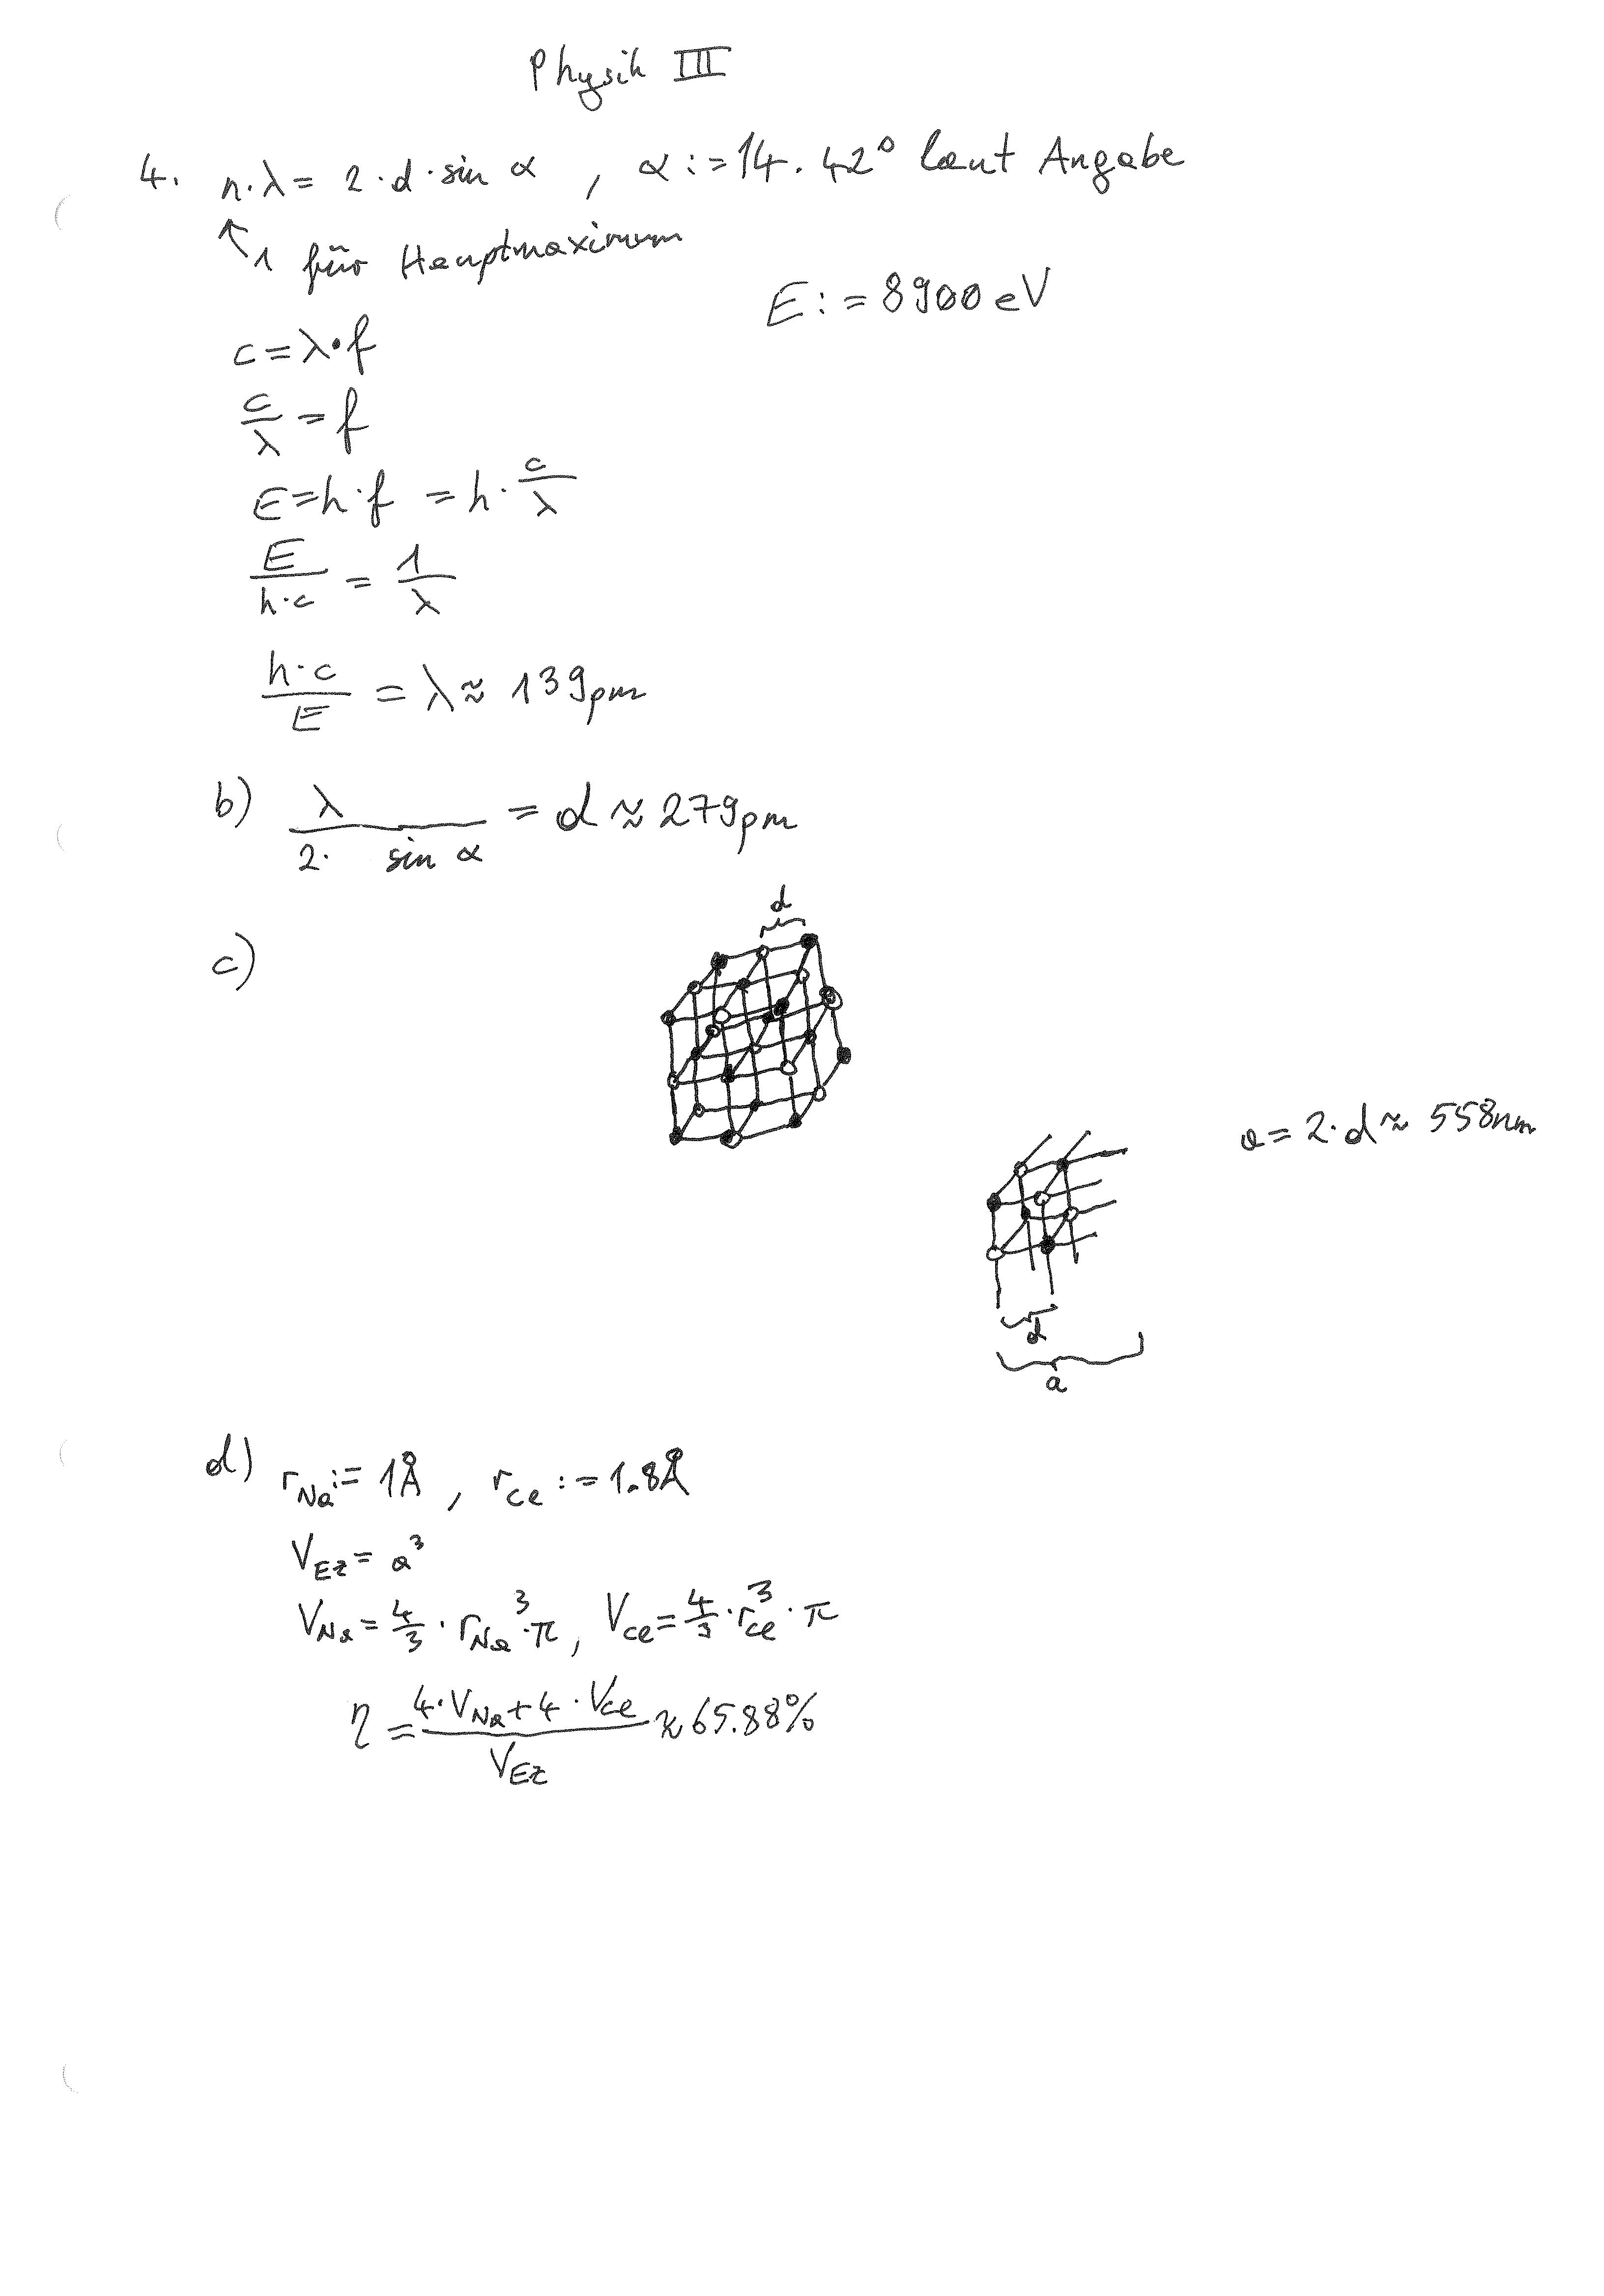 Physik III
4. n·λ = 2·d·sin α , α := 14.42° laut Angabe
↖ 1 für Hauptmaximum
E := 8900 eV
c = λ·f
c/λ = f
E = h·f = h·c/λ
E/(h·c) = 1/λ
(h·c)/E = λ ≈ 139pm
b) λ/(2· sin α) = d ≈ 279pm
d
c)
a = 2·d ≈ 558nm
d
a
d) r_Na := 1Å , r_Ce := 1.8Å
V_EZ = a³
V_Na = 4/3 · r_Na³·π, V_Ce = 4/3 · r_Ce³ · π
η = (4·V_Na + 4·V_Ce)/V_EZ ≈ 65.88%